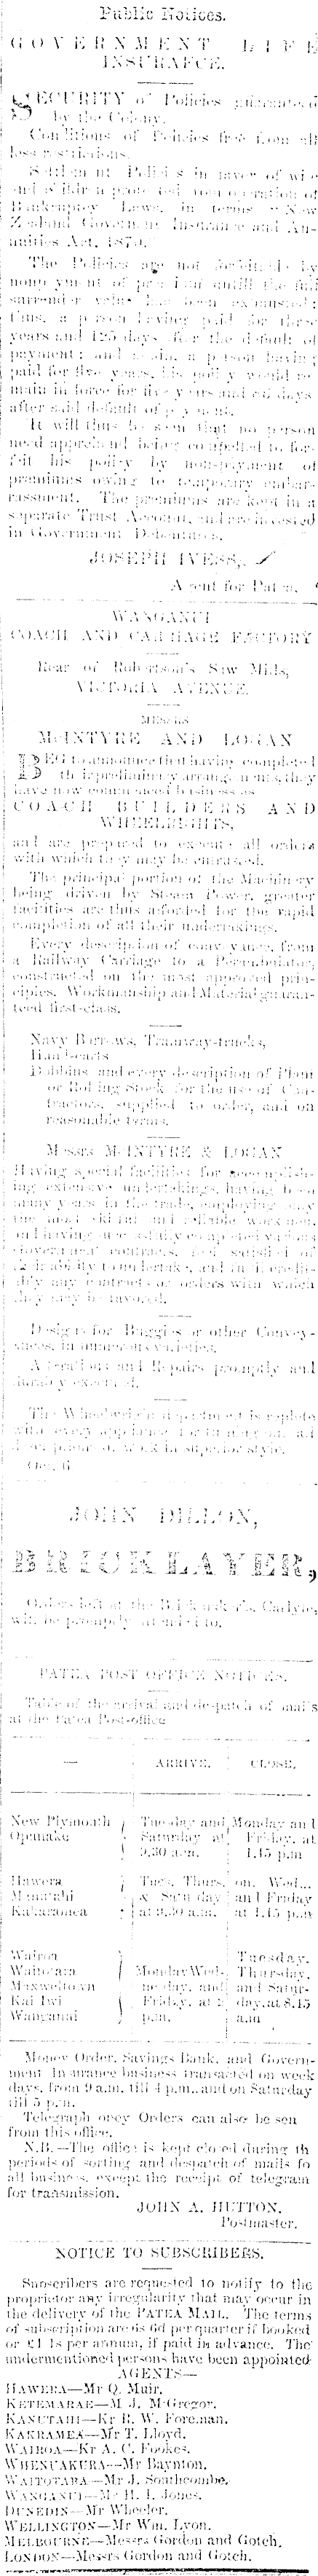 Public Notices.
GOVERNMENT LIFE
INSURANCE.
SECURITY of Policies guaranteed
by the Colony.
Conditions of Policies free from all
less restrictions.
Settlement Policies in favor of wife
and protected from operation of
Bankruptcy Laws, in terms "New
Zealand Government Insurance and An-
nuities Act, 1870.
The Policies are not forfeitable by
nonpayment of premium until the full
surrender value has been exhausted;
thus, a person having paid for three
years and 125 days after the default of
payment; and again, a person having
paid for five years, his policy would re-
main in force for five years and days
after said default of payment.
It will thus be seen that no person
need apprehend being compelled to for-
feit his policy by non-payment of
premiums owing to temporary embar-
rassment. The premiums are kept in a
separate Trust Account, and are invested
in Government Debentures.
JOSEPH IVESS,
Agent for Patea.
WANGANUI
COACH AND CARRIAGE FACTORY
Rear of Robertson's Saw Mills,
VICTORIA AVENUE.
MESSRS
McINTYRE AND LOGAN
BEG to announce that having completed
their preliminary arrangements, they
have now commenced business as
COACH BUILDERS AND
WHEELRIGHTS,
and are prepared to execute all orders
with which they may be entrusted.
The principal portion of the Machinery
being driven by Steam Power, greater
facilities are thus afforded for the rapid
completion of all their undertakings.
Every description of conveyance, from
a Railway Carriage to a Perambulator,
constructed on the most approved prin-
ciples. Workmanship and Material guaran-
teed first-class.
Navy Barrows, Tramway-trucks,
Handcarts
Dobbins and every description of Plant
or Rolling Stock for the use of Con-
tractors, supplied to order, and on
reasonable terms.
Messrs McINTYRE & LOGAN
Having special facilities for accomplish-
ing extensive undertakings, having been
many years in the trade, employing only
the most skilful and reliable workmen,
and having successfully completed various
Government contracts, feel satisfied of
their ability to undertake, and credit-
ably any contracts or orders with which
they may be favored.
Designs for Buggies or other Convey-
ances, in numerous varieties.
Alterations and Repairs promptly and
durably executed.
The Wheelwright department is replete
with every appliance for turning out all
descriptions of work in superior style.
Oct. 6
JOHN DILLON,
BRICKLAYER,
Orders left at the Brickmaker's, Carlyle,
will be promptly attended to.
PATEA POST OFFICE NOTICES.
Table of the arrival and despatch of mails
at the Patea Post-office
— ARRIVE. CLOSE.
New Plymouth Tuesday and Monday and
Opunake Saturday at Friday, at
9.30 a.m. 1.45 p.m
Hawera Tues, Thurs, on. Wed...
Manutahi & Saturday and Friday
Kakaramea at 9.30 a.m. at 1.45 p.m
Wairoa Tuesday,
Waitotara Monday Wed- Thursday,
Maxweltown nesday, and and Satur-
Kai Iwi Friday, at 2 day, at 8.45
Wanganui p.m. a.m
Money Order, Savings Bank, and Govern-
ment Insurance business transacted on week
days, from 9 a.m. till 4 p.m. and on Saturday
till 5 p.m.
Telegraph oney Orders can also be sen
from this office.
N.B.—The office is kept closed during th
periods of sorting and despatch of mails fo
all business, except the receipt of telegram
for transmission.
JOHN A. HUTTON.
Postmaster.
NOTICE TO SUBSCRIBERS.
Subscribers are requested to notify to the
proprietor any irregularity that may occur in
the delivery of the PATEA MAIL. The terms
of subscription are 6s 6d per quarter if booked
or £1 4s per annum, if paid in advance. The
undermentioned persons have been appointed
AGENTS—
HAWERA—Mr Q. Muir.
KETEMARAE—M J. McGregor.
KANUTAHI—Kr R. W. Foreman.
KAKRAMEA—Mr T. Lloyd.
WAIROA—Kr A. C. Fookes.
WHENUAKURA—Mr Baynton.
WAITOTARA—Mr J. Southcombe.
WANGANUI—Mr H. I. Jones.
DUNEDIN—Mr Wheeler.
WELLINGTON—Mr Wm. Lyon.
MELBOURNE—Messrs Gordon and Gotch.
LONDON—Messrs Gordon and Gotch.